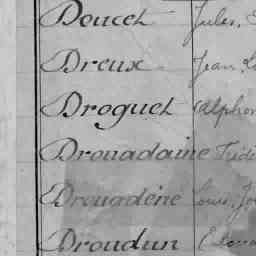 Doucet Jules,
Dreux Jean
Droguet Alphon
Drouadaine Frédé
Drouadène Louis, Jo
Droudun